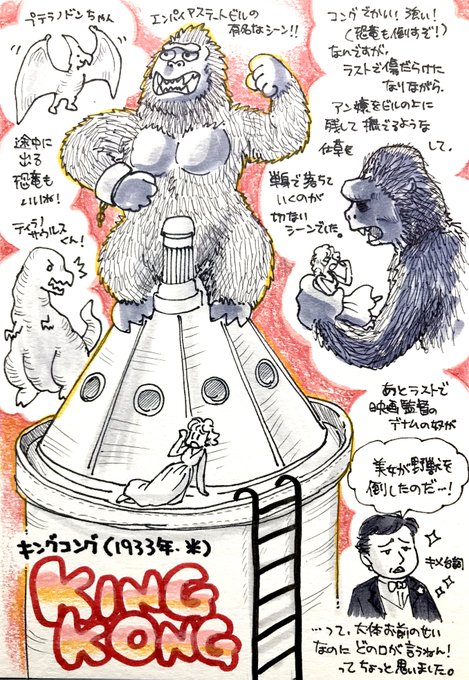 プテラノドンちゃん
エンパイアステートビルの
有名なシーン!!
コングでかい!強い!
(恐竜も倒すぞ!)
なんですが、
ラストで傷だらけに
なりながら、
アン嬢をビルの上に
残して撫でるような
仕草をして。
単身で落ちて
いくのが
切ない
シーンでした。
途中に
出る
恐竜も
いいね!
ティラノ
サウルス
くん!
あとラストで
映画監督の
デナムの奴が
美女が野獣を
倒したのだ…!
キメ台詞
…って、大体お前のせい
なのにどの口が言うねん!
ってちょっと思いました。
キングコング(1933年・米)
KING
KONG